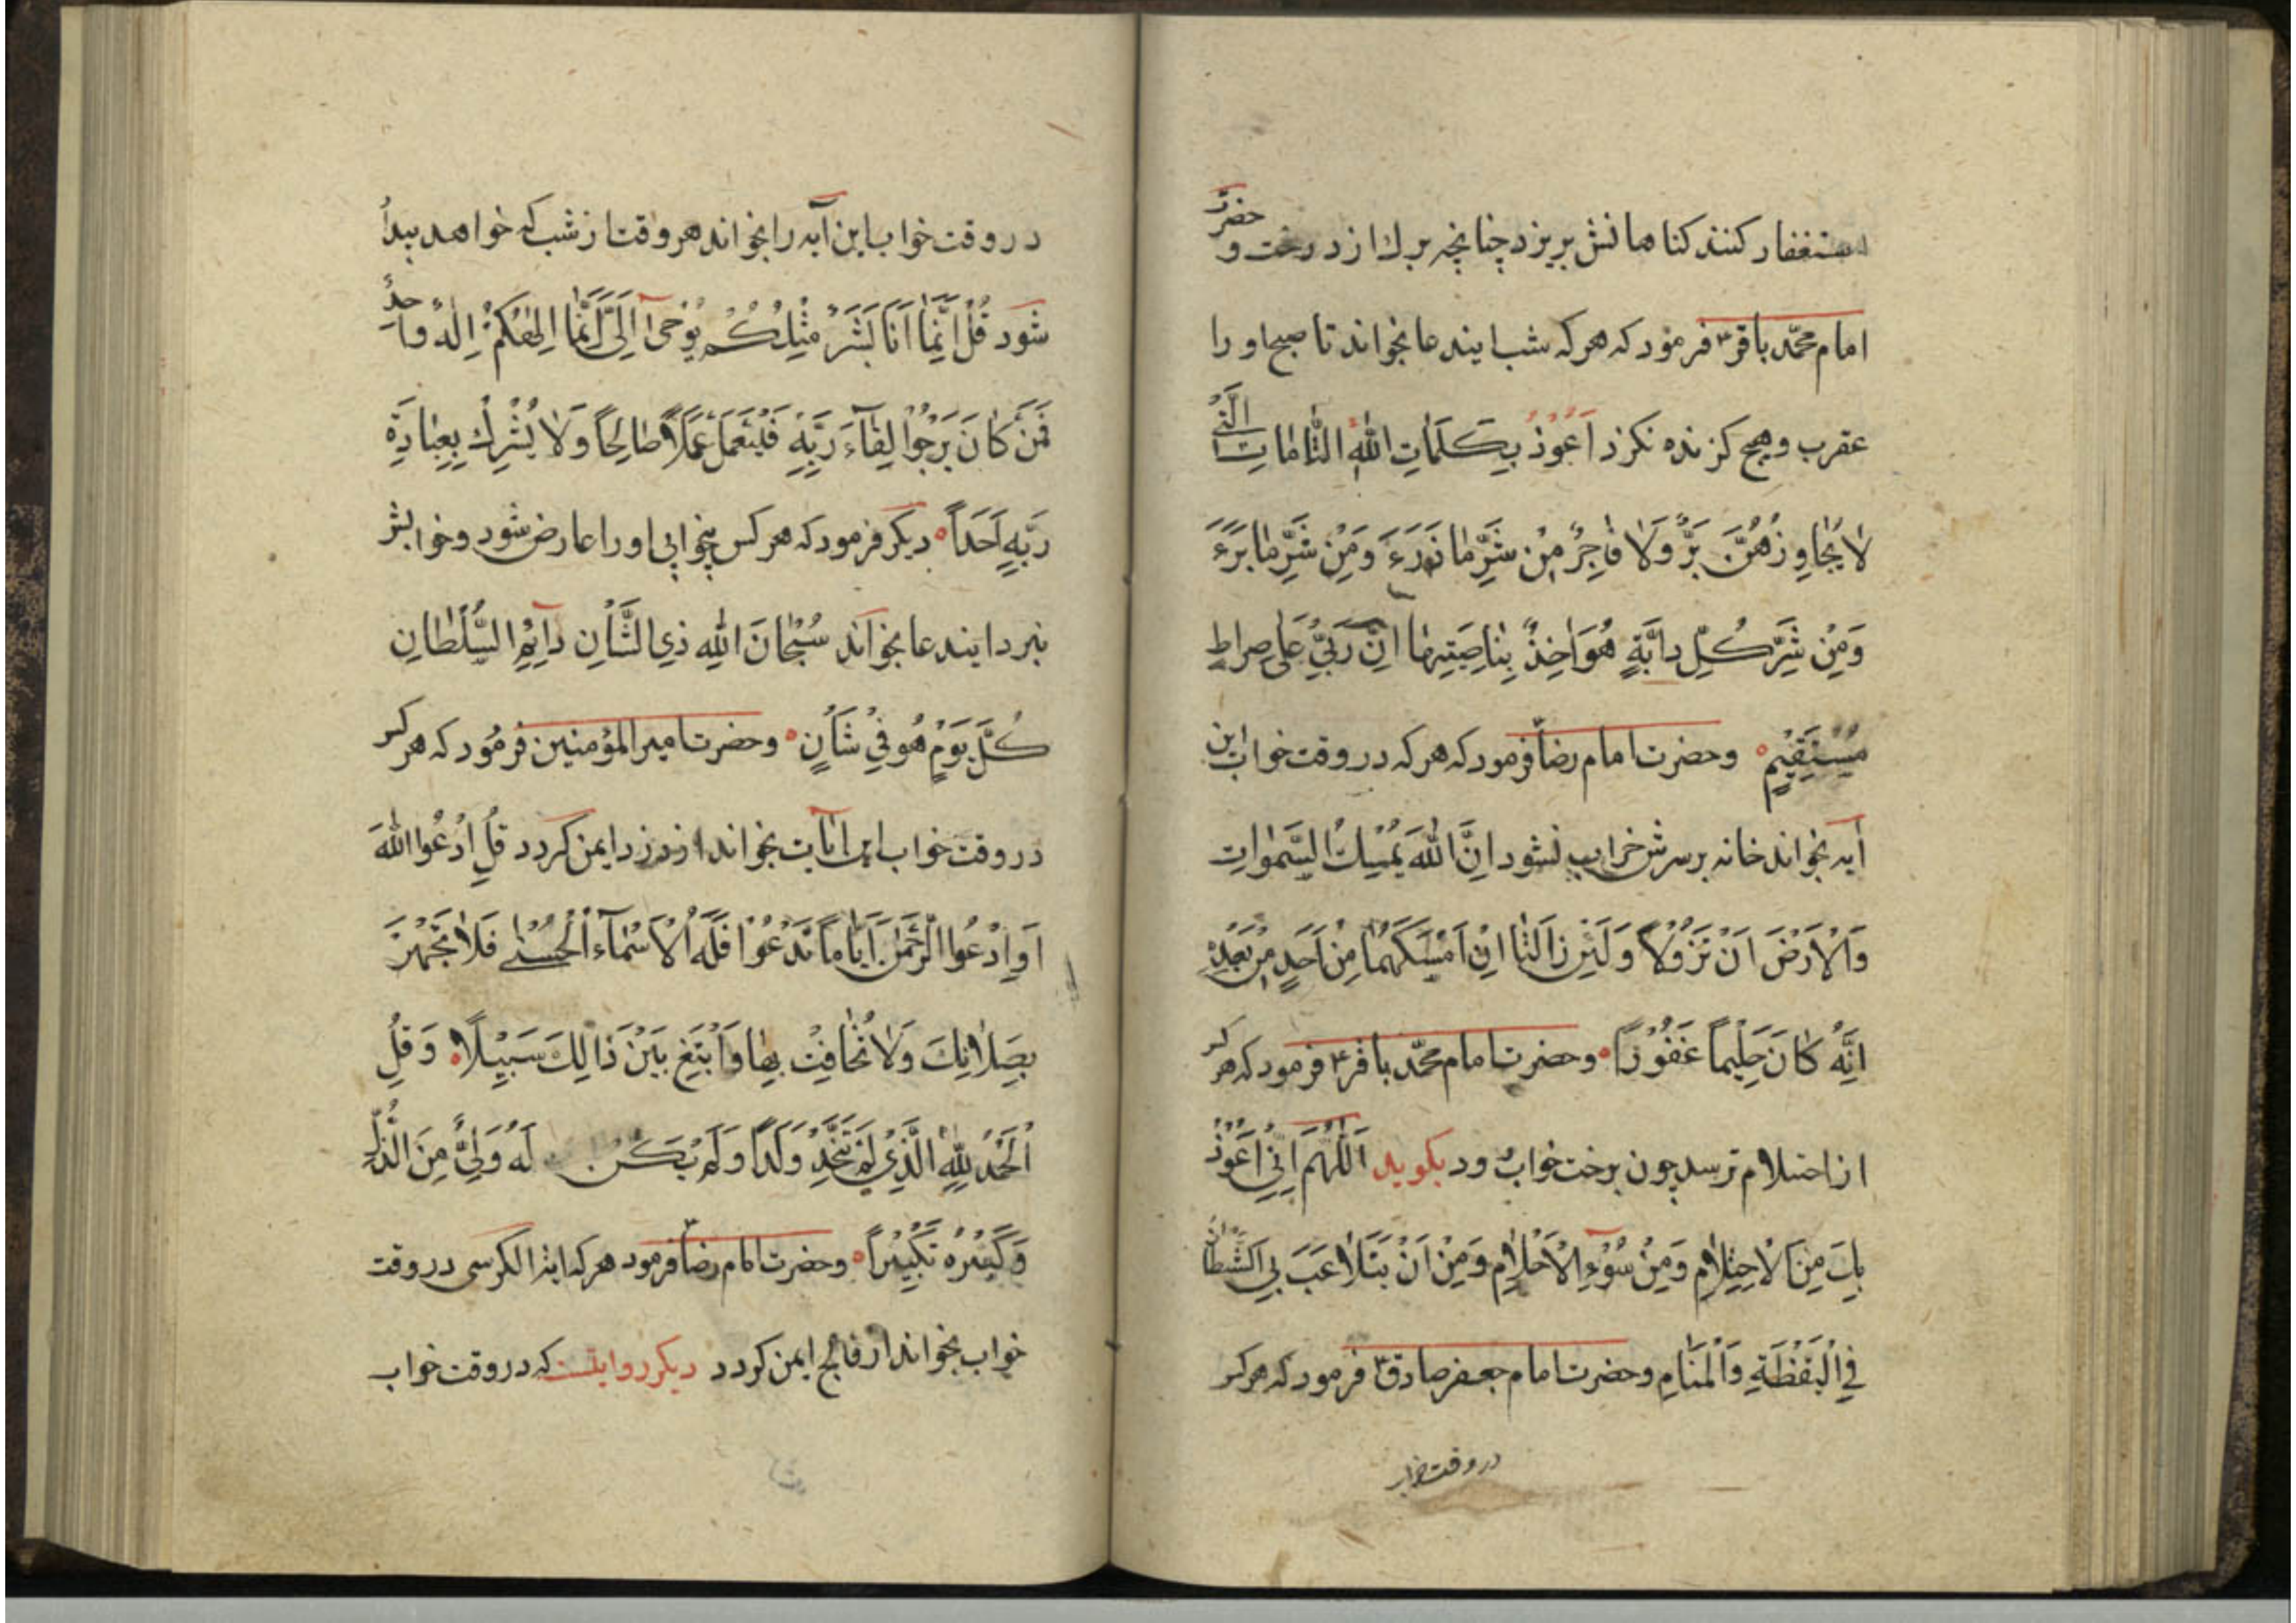 استغفار کنند کناهانش بریزد چنانچه برك از درخت و حضرت
امام محمّد باقر ع فرمود که هر که شب ایندعا بخواند تا صبح او را
عقرب و هیچ کزنده نکزد اَعُوذُ بِکَلَمَاتِ اللّٰهِ التَّامَاتِ الَّتِی
لَا یُجَاوِزُهُنَّ بَرٌّ وَلَا فَاجِرٌ مِنْ شَرِّ مَا ذَرَءَ وَمِنْ شَرِّ مَا بَرَءَ
وَمِنْ شَرِّ کُلِّ دابَّةٍ هُوَ اٰخِذٌ بِنَاصِیَتِهَا اِنَّ رَبّی عَلی صِراطٍ
مُسْتَقِیْمٍ وحضرت امام رضا فرمود که هر که در وقت خواب این
آیه بخواند خانه برسرش خراب نشود اِنَّ اللّٰهَ یُمْسِكُ السَّمٰواتِ
وَالْاَرْضَ اَنْ تَزُوْلَا وَلَئِنْ زَالَتَا اِنْ اَمْسَکَهُمَا مِنْ اَحَدٍ مِنْ بَعْدِهِ
اِنَّهُ کَانَ حَلِیْماً غَفُوْرًا وحضرت امام محمّد باقر ع فرمود که هر کس
از احتلام ترسد چون برخت خواب رود بکوید اَللّٰهُمَّ اِنِّی اَعُوْذُ
بِكَ مِنَ الْاِحتِلَامِ وَمِنْ سُوْءِ الْاَحْلَامِ وَمِنْ اَنْ یَتَلَاعَبَ بِی الشَّیْطَانُ
فِی الْیَقْظَةِ وَالْمَنَامِ وحضرت امام جعفر صادق ع فرمود که هر کس
در وقت خواب
در وقت خواب این آیه را بخواند هر وقت از شب که خواهد بیدار
شود قُلْ اِنَّمَا اَنَا بَشَرٌ مِثْلُکُمْ یُوْحٰی اِلَیَّ اَنَّمَا اِلٰهُکُمْ اِلٰهٌ وَاحِدٌ
فَمَنْ کَانَ یَرْجُوْا لِقَاءَ رَبِّهِ فَلْیَعْمَلْ عَمَلًا صَالِحًا وَلَا یُشْرِكْ بِعِبَادَةِ
رَبِّهِ اَحَدًا دیکر فرمود که هر کس بیخوابی او را عارض شود و خوابش
نبرد ایندعا بخواند سُبْحَانَ اللّٰهِ ذِی الشَّاْنِ دَآئِمِ السُّلْطَانِ
کُلَّ یَوْمٍ هُوَ فِی شَأنٍ وحضرت امیرالمؤمنین فرمود که هر کس
در وقت خواب این آیات بخواند از دزد ایمن کردد قُلِ ادْعُوا اللّٰهَ
اَوِ ادْعُوا الرَّحْمٰنَ اَیًّا مَا تَدْعُوْا فَلَهُ الْاَسْمَآءُ الْحُسْنٰی فَلَا تَجْهَرْ
بِصَلَاتِكَ وَلَا تُخَافِتْ بِهَا وَابْتَغِ بَیْنَ ذَالِكَ سَبِیْلًا وَقُلِ
الْحَمْدُ لِلّٰهِ الَّذِی لَمْ یَتَّخِذْ وَلَدًا وَلَمْ یَکُنْ لَهُ وَلِیٌّ مِنَ الذُّلِّ
وَکَبِّرْهُ تَکْبِیْرًا وحضرت امام رضا فرمود هر که ایة الکرسی در وقت
خواب بخواند از فالج ایمن کردد دیکر روایتست که در وقت خواب